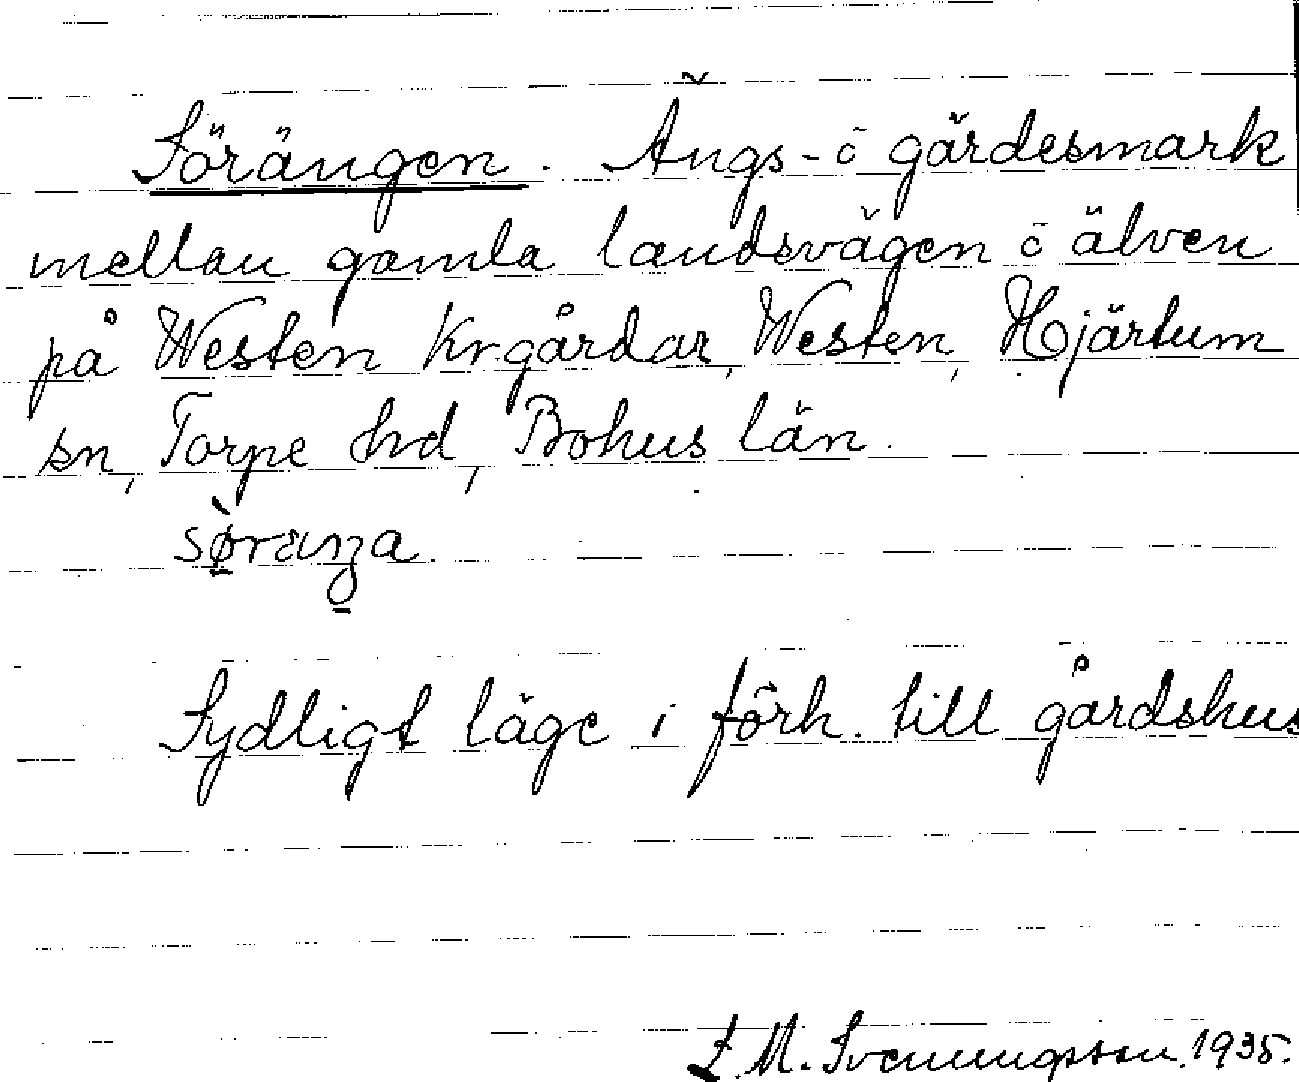 Sörängen. Ängs- o gärdesmark
mellan gamla landsvägen o älven
på Westen Krgårdar, Westen, Hjärtum
sn, Torpe hd, Bohus län.
Sydligt läge i förh. till gårdshus
M. Svenungsson. 1935.